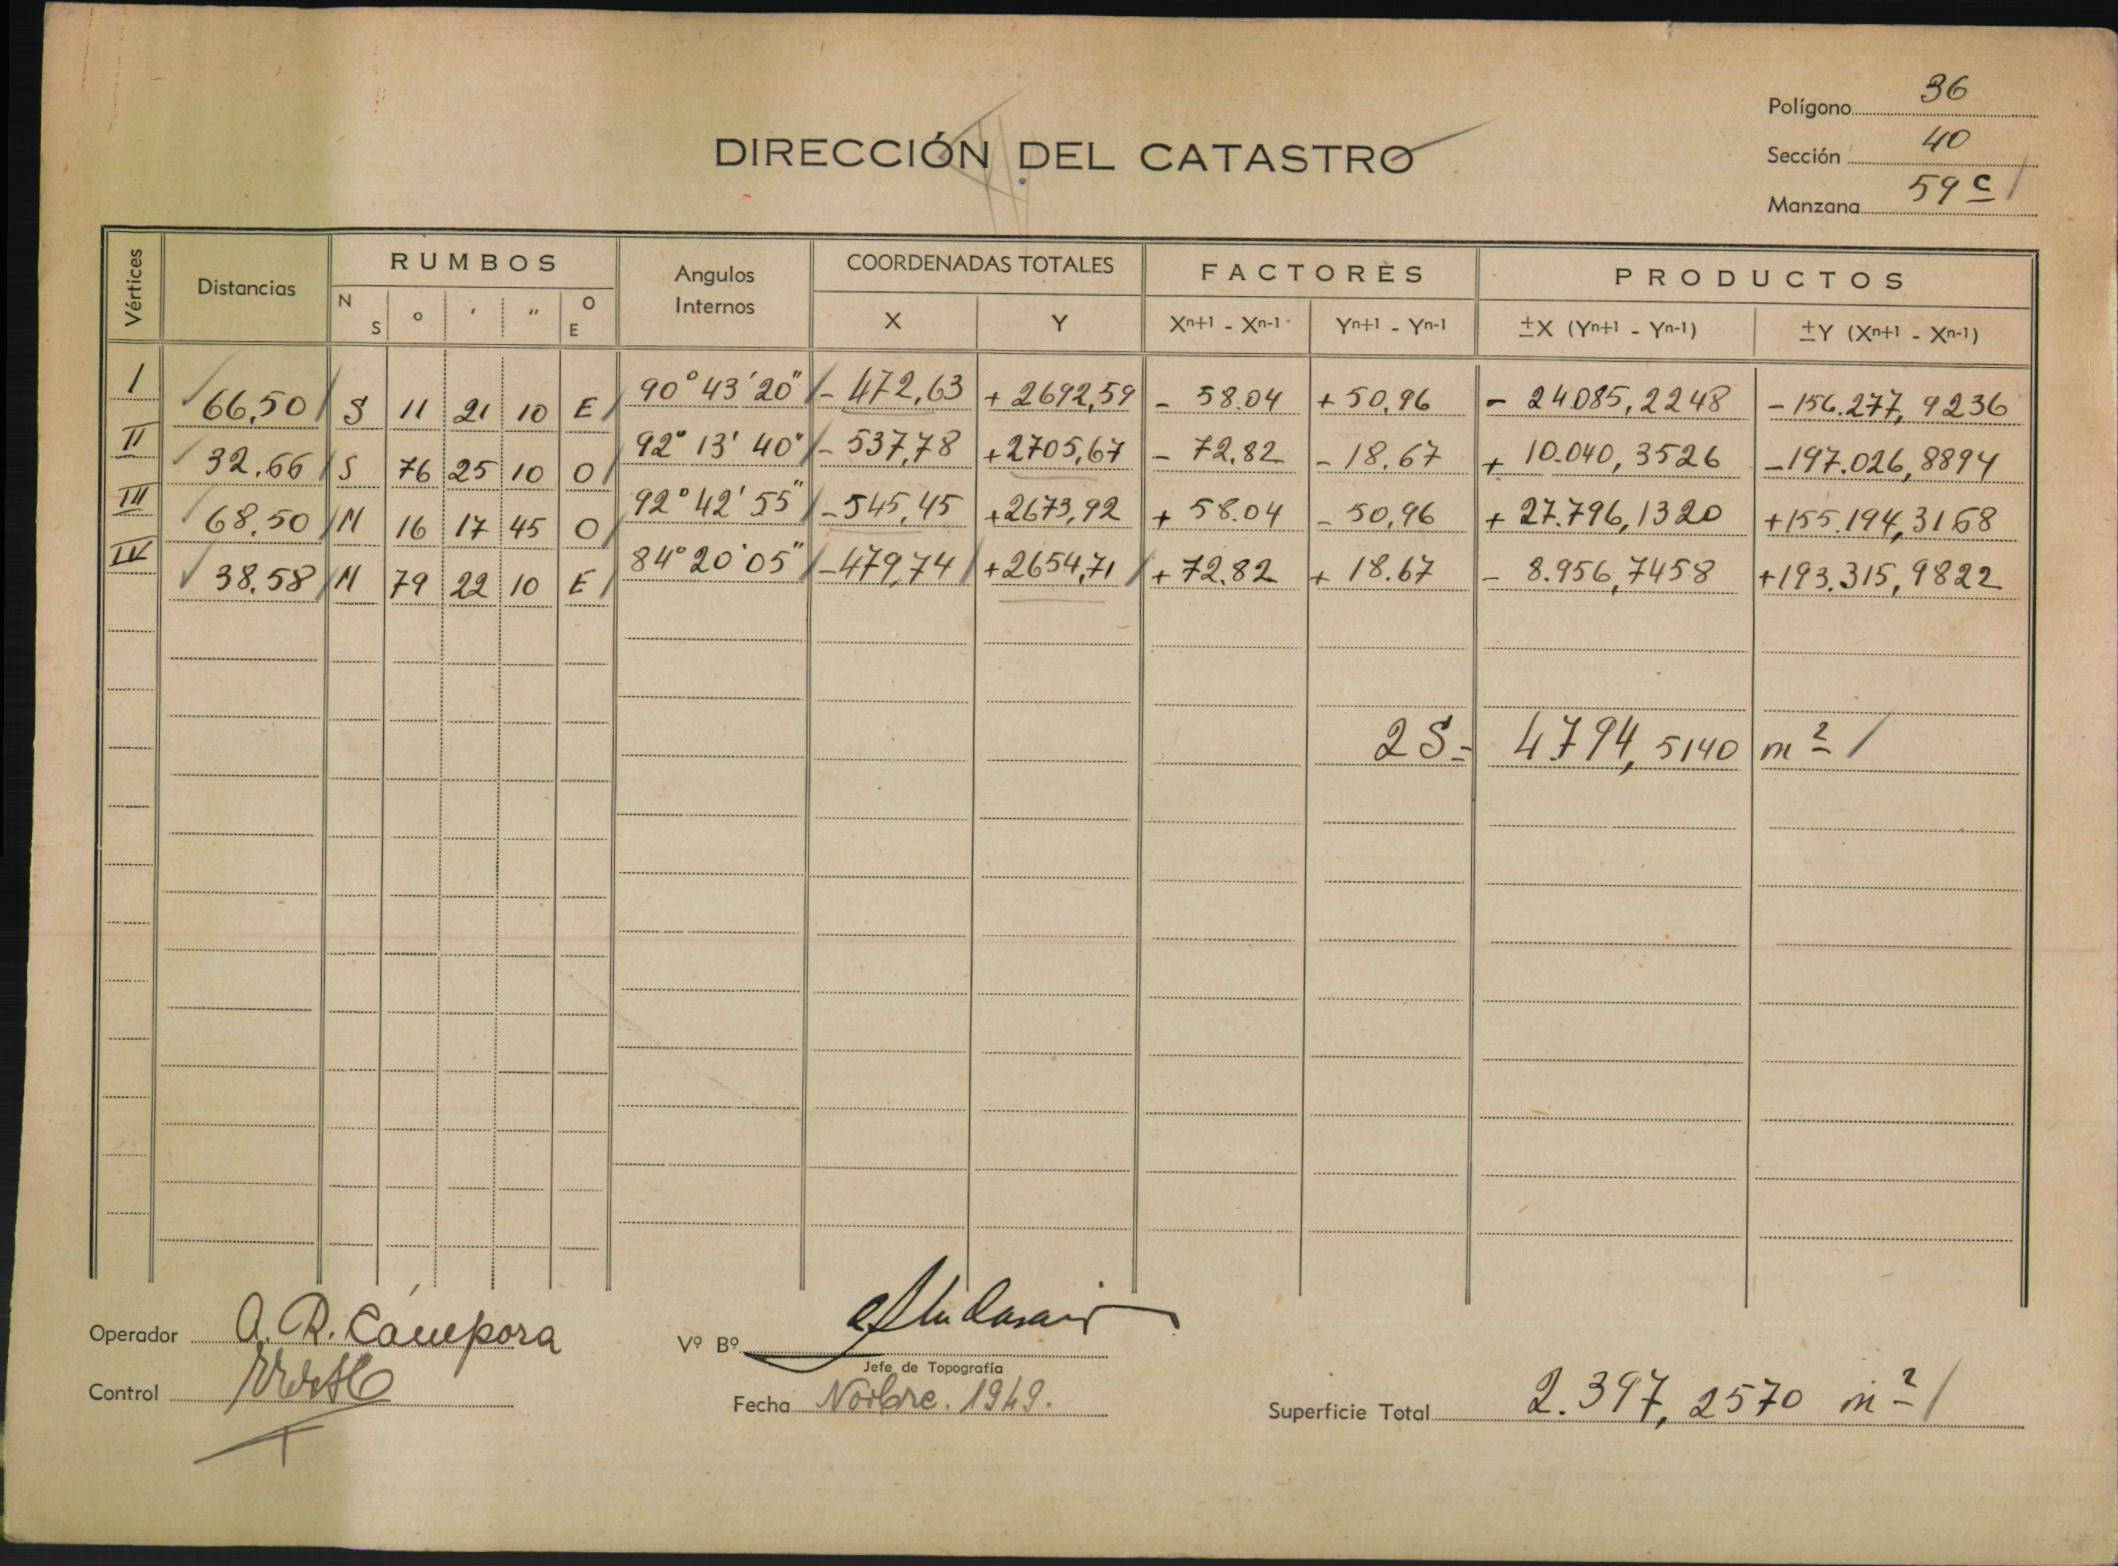 Polígono 36
DIRECCIÓN DEL CATASTRO
Sección 40
Manzana 59 c
Vértices Distancias RUMBOS Angulos Internos COORDENADAS TOTALES FACTORES PRODUCTOS
N S ° ' " O E X Y Xn+1 - Xn-1 Yn+1 - Yn-1 ±X (Yn+1 - Yn-1) ±Y (Xn+1 - Xn-1)
I 66,50 S 11 21 10 E 90° 43' 20" - 472,63 + 2692,59 - 58.04 + 50,96 - 24085,2248 - 156.277,9236
II 32.66 S 76 25 10 O 92° 13' 40" - 537,78 + 2705,67 - 72.82 - 18.67 + 10.040,3526 - 197.026,8894
III 68,50 N 16 17 45 O 92° 42' 55" - 545,45 + 2673,92 + 58.04 - 50,96 + 27.796,1320 + 155.194,3168
IV 38.58 N 79 22 10 E 84° 20' 05" - 479,74 + 2654,71 + 72.82 + 18.67 - 8.956,7458 + 193.315,9822
2 S = 4794,5140 m²
Operador A. R. Cámpora
Vº Bº
Jefe de Topografía
Control
Fecha Novbre. 1949.
Superficie Total 2.397,2570 m²